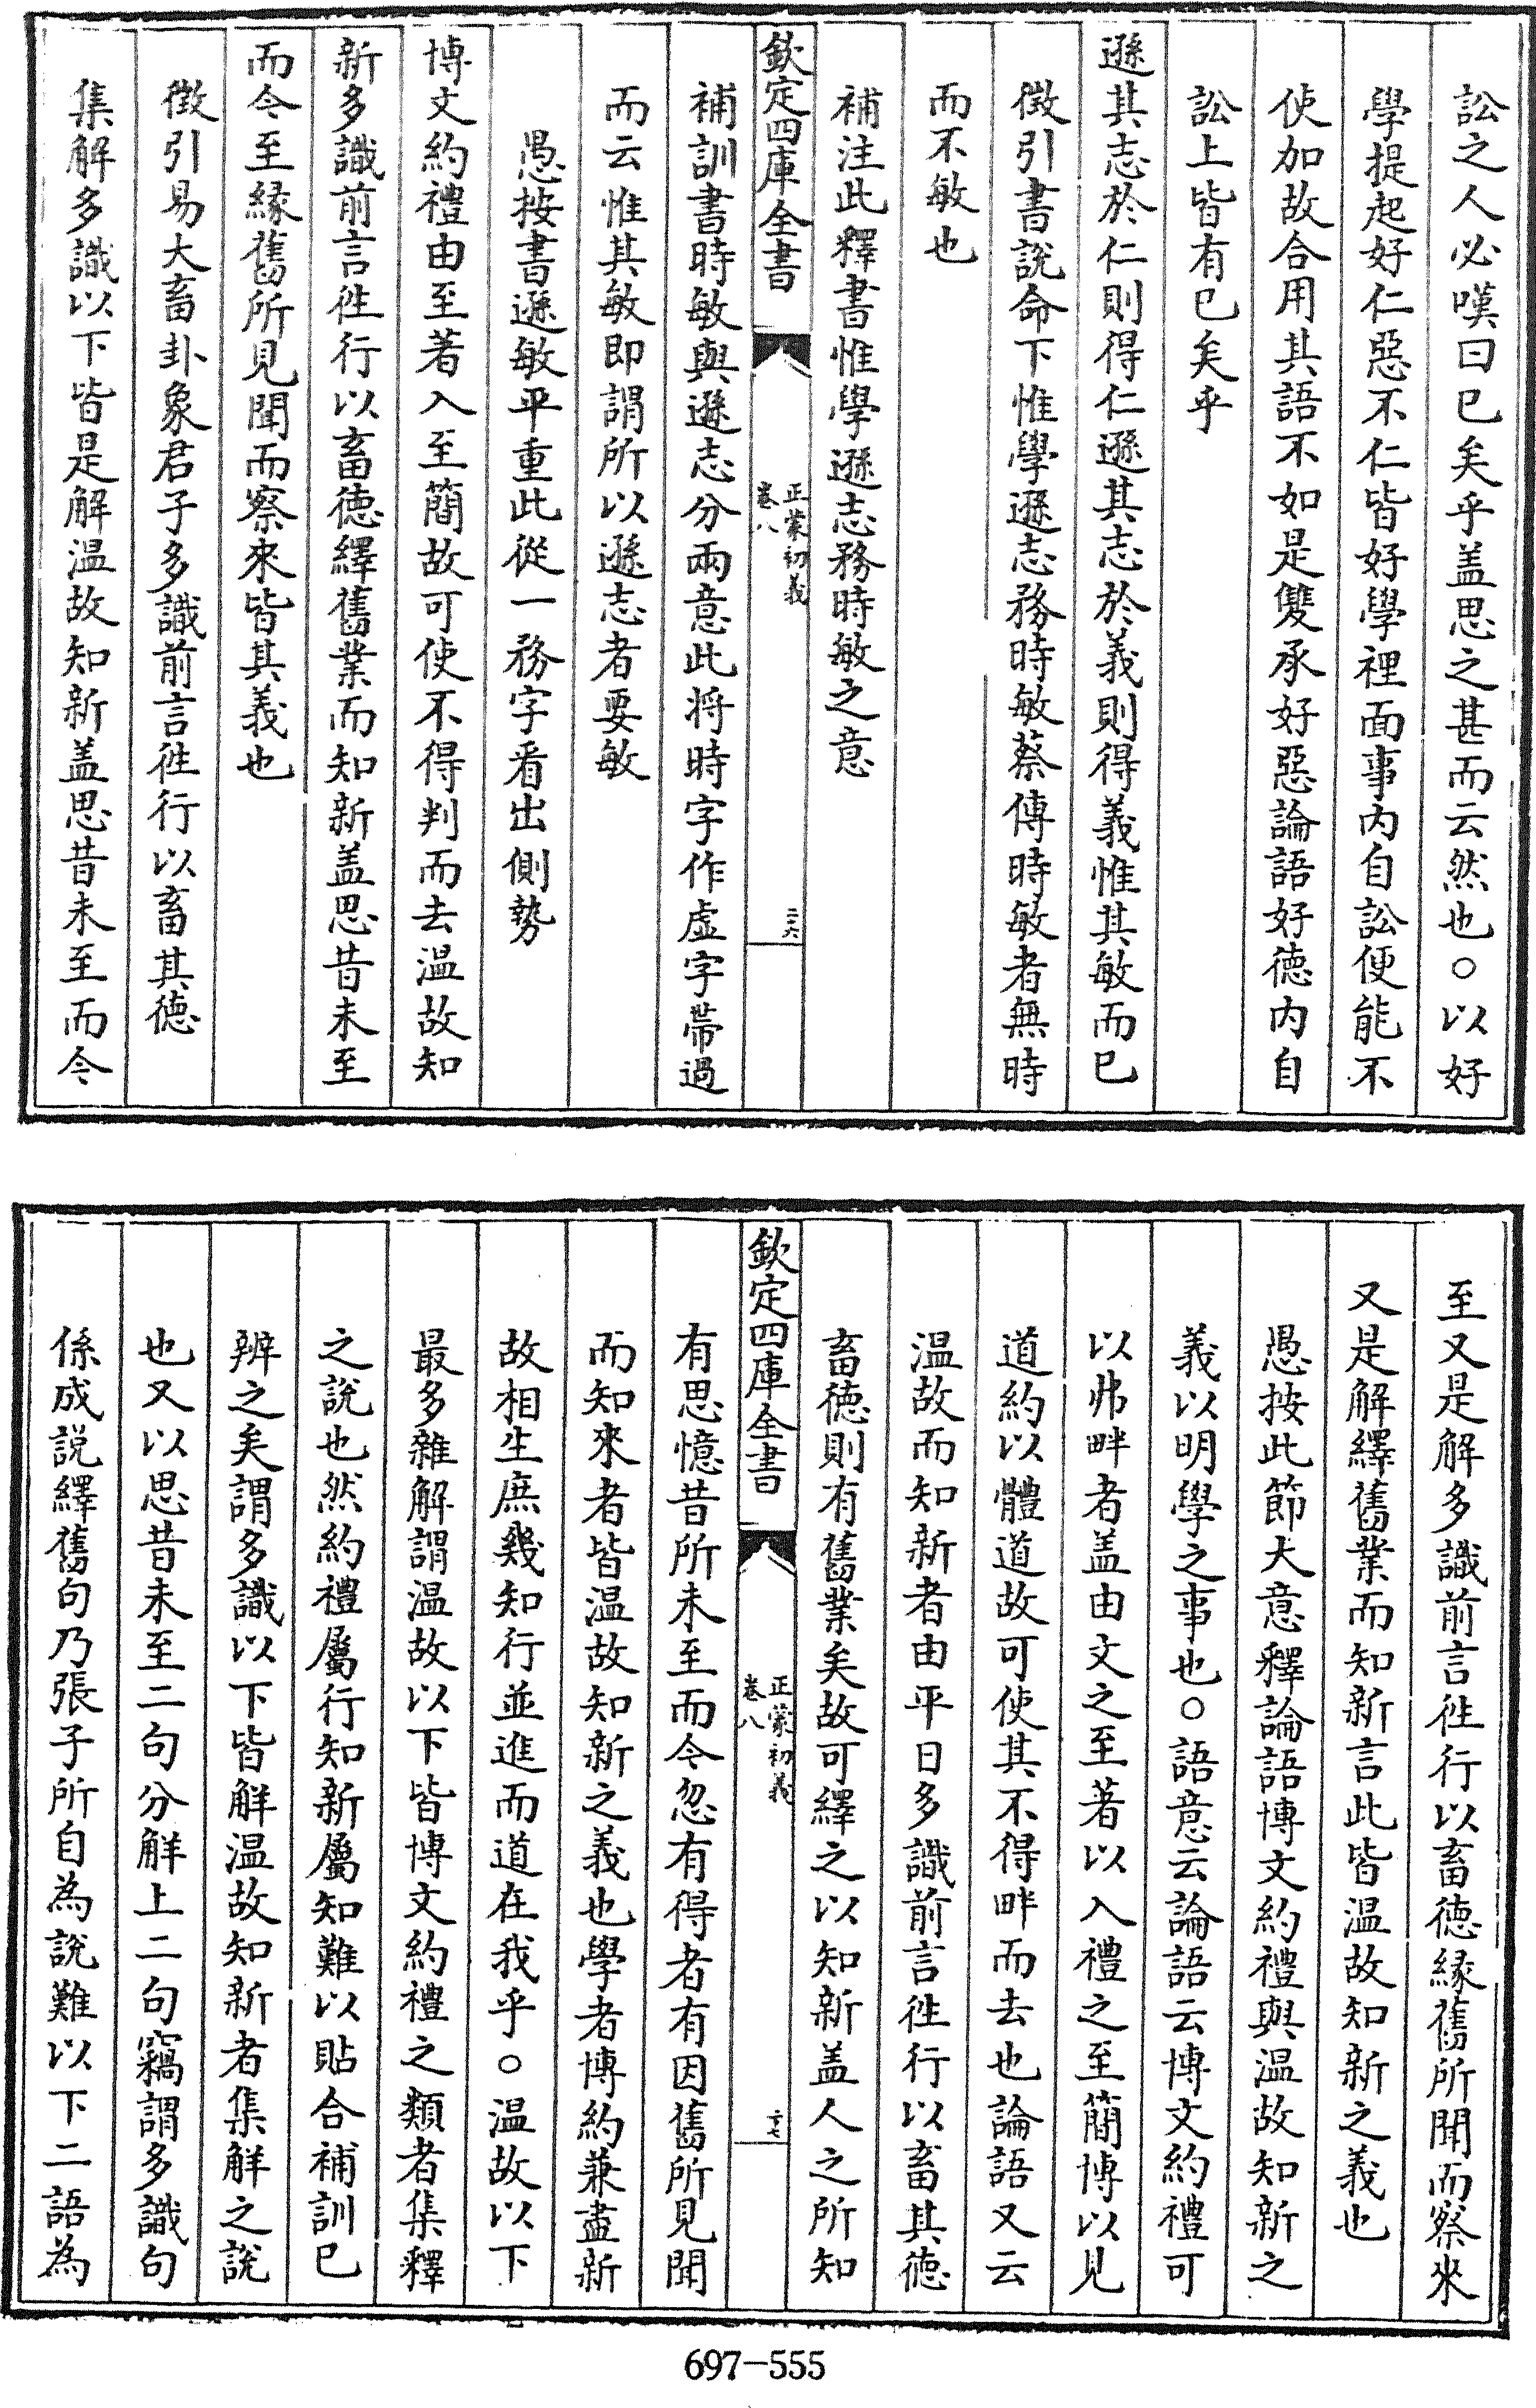 訟之人必嘆曰已矣乎盖思之甚而云然也○以好
學提起好仁惡不仁皆好學裡面事内自訟便能不
使加故合用其語不如是雙承好惡論語好徳内自
訟上皆有已矣乎
遜其志於仁則得仁遜其志於義則得義惟其敏而已
徴引書說命下惟學遜志務時敏蔡傳時敏者無時
而不敏也
補注此釋書惟學遜志務時敏之意
欽定四庫全書
正蒙初義
卷八
二十六
補訓書時敏與遜志分兩意此将時字作虚字帶過
而云惟其敏即謂所以遜志者要敏
愚按書遜敏平重此從一務字看出側勢
博文約禮由至著入至簡故可使不得判而去温故知
新多識前言徃行以畜徳繹舊業而知新盖思昔未至
而今至縁舊所見聞而察來皆其義也
徴引易大畜卦象君子多識前言徃行以畜其徳
集解多識以下皆是解温故知新盖思昔未至而今
至又是解多識前言徃行以畜徳縁舊所聞而察來
又是解繹舊業而知新言此皆温故知新之義也
愚按此節大意釋論語博文約禮與温故知新之
義以明學之事也○語意云論語云博文約禮可
以弗畔者盖由文之至著以入禮之至簡博以見
道約以體道故可使其不得畔而去也論語又云
温故而知新者由平日多識前言徃行以畜其徳
畜徳則有舊業矣故可繹之以知新盖人之所知
欽定四庫全書
正蒙初義
卷八
二十七
有思憶昔所未至而今忽有得者有因舊所見聞
而知來者皆温故知新之義也學者博約兼盡新
故相生庶幾知行並進而道在我乎○温故以下
最多雜解謂温故以下皆博文約禮之類者集釋
之說也然約禮屬行知新屬知難以貼合補訓已
辨之矣謂多識以下皆解温故知新者集解之說
也又以思昔未至二句分解上二句竊謂多識句
係成說繹舊句乃張子所自為說難以下二語為
697-555